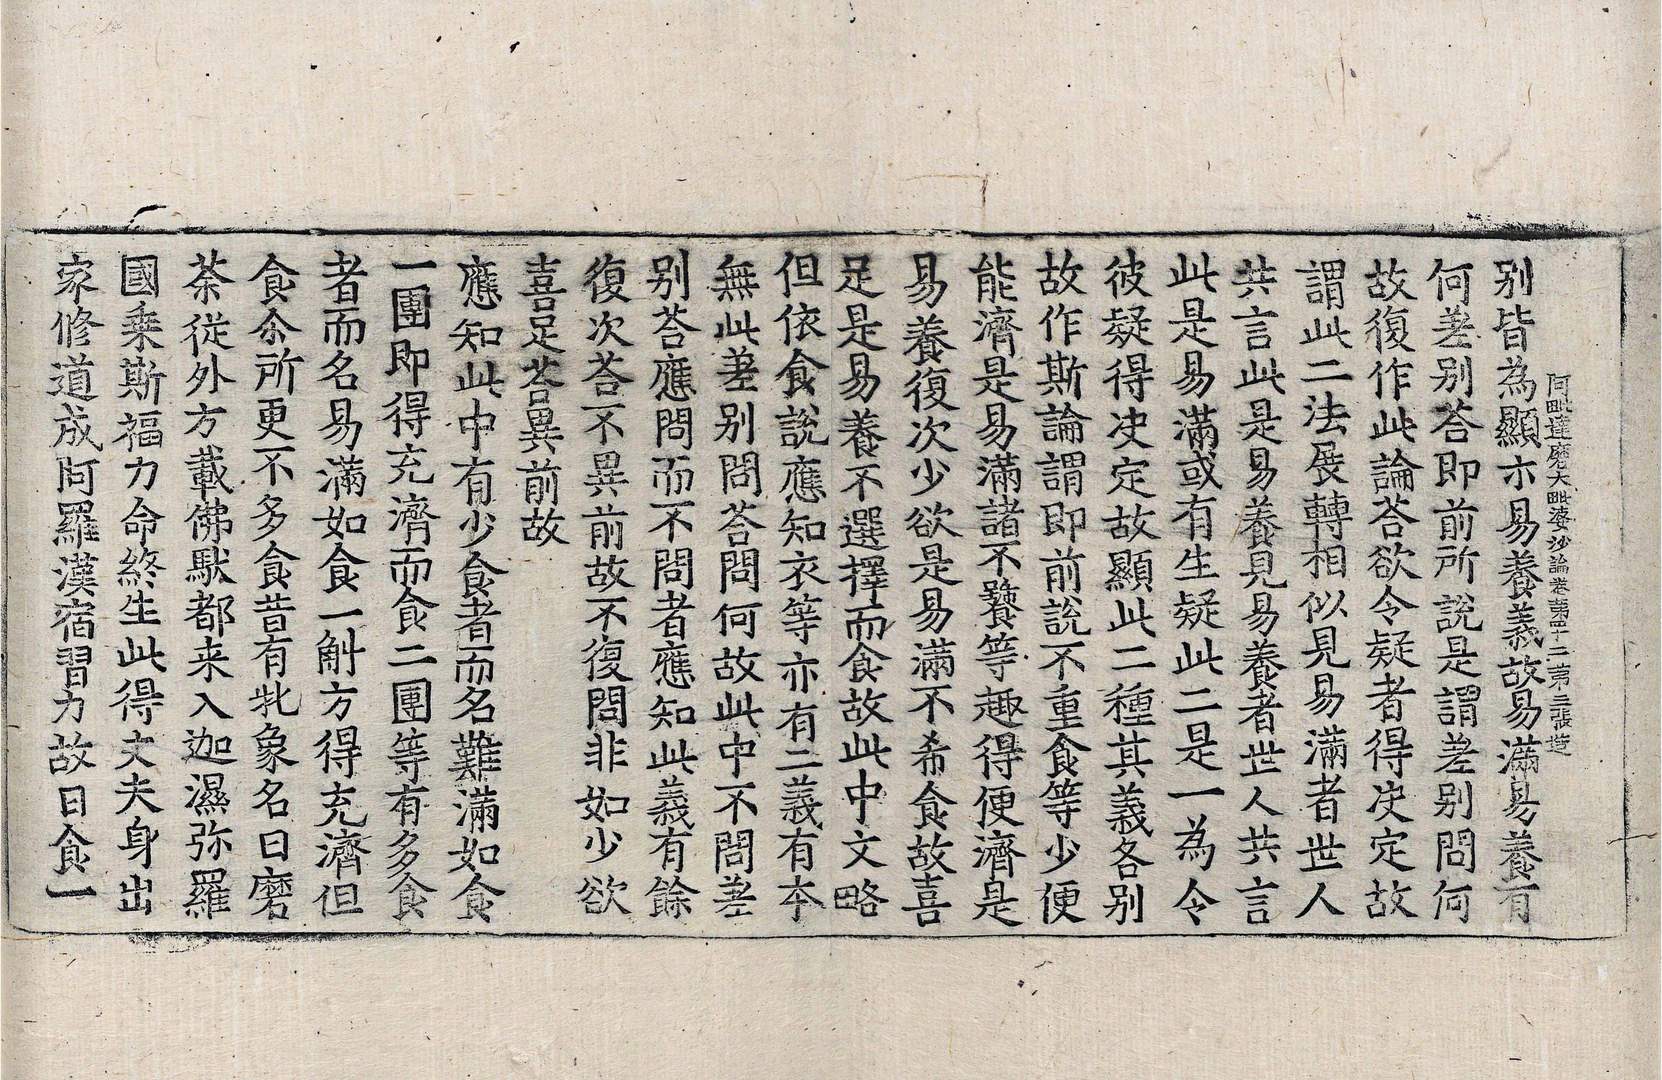 阿毗達磨大毗婆沙論卷第四十二第三張造
别皆為顯示易養義故易滿易養有
何差别荅即前所說是謂差别問何
故復作此論荅欲令疑者得决定故
謂此二法展轉相似見易滿者世人
共言此是易養見易養者世人共言
此是易滿或有生疑此二是一為令
彼疑得决定故顯此二種其義各别
故作斯論謂即前說不重食等少便
能濟是易滿諸不饕等趣得便濟是
易養復次少欲是易滿不希食故喜
足是易養不選擇而食故此中文略
但依食說應知衣等亦有二義有本
無此差别問荅問何故此中不問差
别荅應問而不問者應知此義有餘
復次荅不異前故不復問非如少欲
喜足荅異前故
應知此中有少食者而名難滿如食
一團即得充濟而食二團等有多食
者而名易滿如食一斛方得充濟但
食尒所更不多食昔有牝象名曰磨
荼從外方載佛馱都来入迦濕弥羅
國乗斯福力命終生此得丈夫身出
家修道成阿羅漢宿習力故日食一